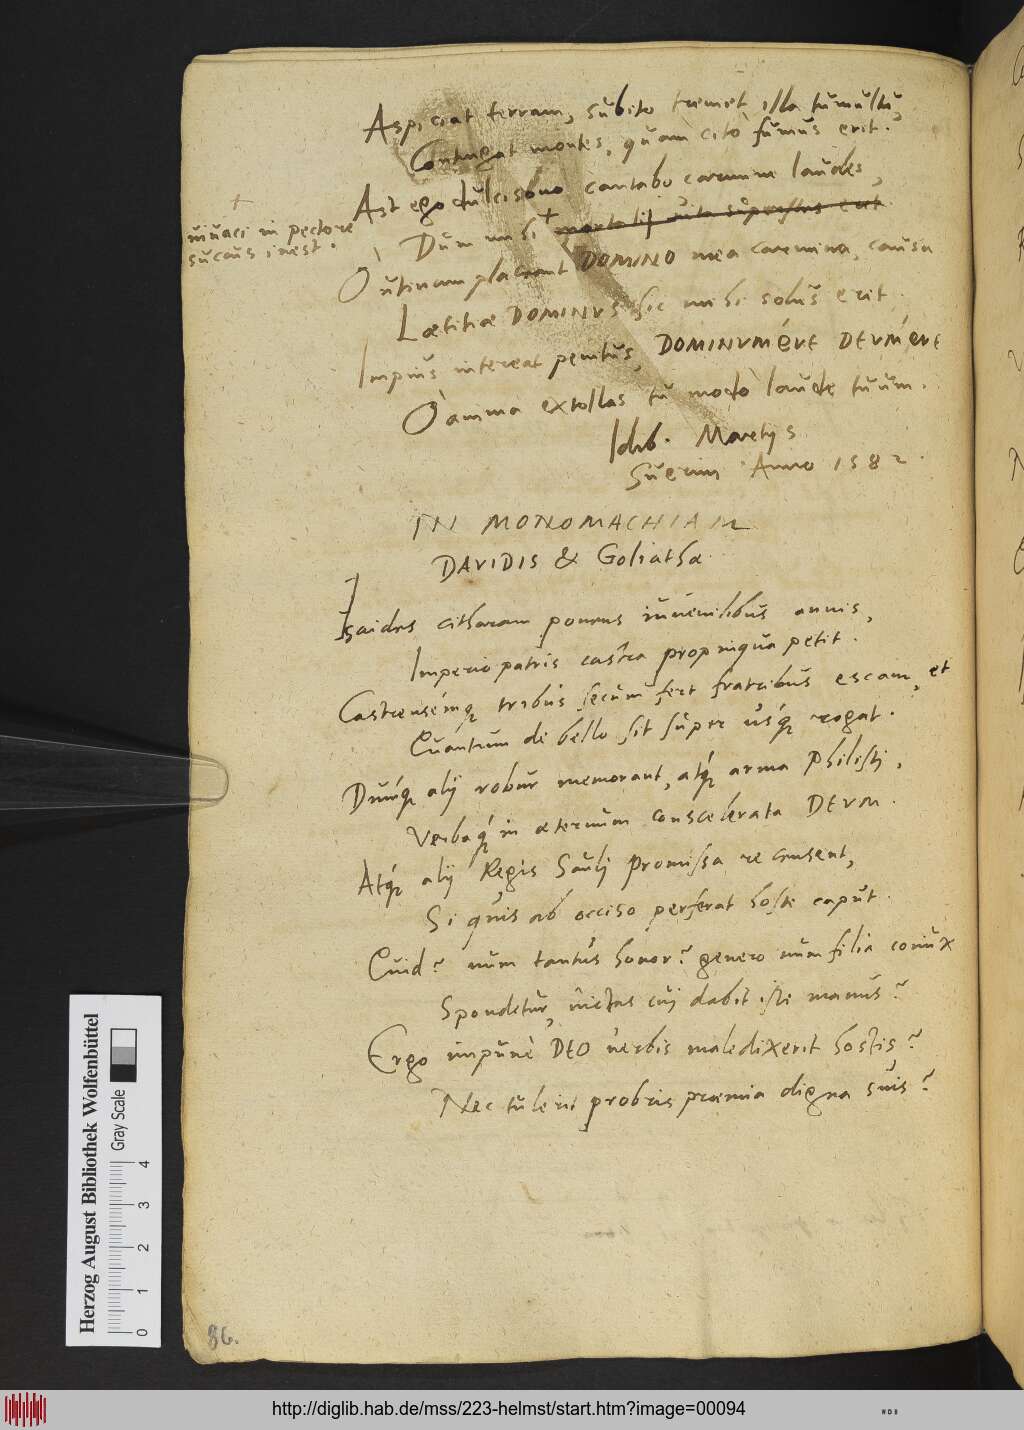 Aspiciat terram, subito tremet illa tumultu,
Contingat montes, quàm citò fumus erit.
Ast ego dulcisono cantabo carmine laudes,
Dum mihi + mortali vita superstes erit.
+
uiuaci in pectore
succus inest.
O utinam placeant DOMINO mea carmina, causa
Lætitiæ DOMINVS sic mihi solus erit.
Impius intereat penitus, DOMINVMQVE DEVMQVE
O anima extollas tu modò laude tuum.
Idib. Martijs
Suerini Anno 1582.
IN MONOMACHIAM
DAVIDIS & Goliathæ.
Isaides citharam ponens iuuenilibus annis,
Imperio patris castra propinqua petit.
Castrensémq tribus secum fert fratribus escam, et
Quantum de bello sit super usq́ rogat.
Dumq́ alij robur memorant, atq́ arma Philisti,
Verbaq́ in æternum conscelerata DEVM.
Atq́ alij Regis Sauli promissa recensent,
Si quis ab occiso perferat hoste caput.
Quid? num tantus honor? genero num filia coniux
Spondetur, uictas cui dabit iste manus?
Ergo impunè DEO uerbis maledixerit hostis?
Nec tulerit probris præmia digna suis?
86.
Herzog August Bibliothek Wolfenbüttel
Gray Scale
0 1 2 3 4
http://diglib.hab.de/mss/223-helmst/start.htm?image=00094